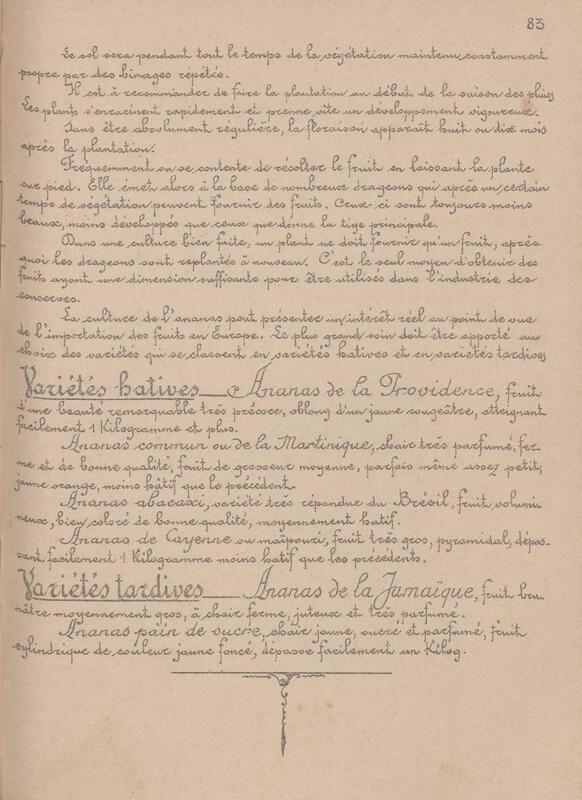 83
Le sol sera pendant tout le temps de la végétation maintenu constamment
propre par des binages répétés.
Il est à recommander de faire la plantation au début de la saison des pluies
Les plants s'enracinent rapidement et prenne vite un développement vigoureux.
Sans être absolument régulière, la floraison apparaît huit ou dix mois
après la plantation.
Fréquemment on se contente de récolter le fruit en laissant la plante
sur pied. Elle émet alors à la base de nombreux drageons qui après un certain
temps de végétation peuvent fournir des fruits. Ceux-ci sont toujours moins
beaux, moins développés que ceux que donne la tige principale.
Dans une culture bien faite, un plant ne doit fournir qu'un fruit, après
quoi les drageons sont replantés à nouveau. C'est le seul moyen d'obtenir des
fruits ayant une dimension suffisante pour être utilisés dans l'industrie des
conserves.
La culture de l'ananas peut présenter un intérêt réel au point de vue
de l'importation des fruits en Europe. Le plus grand soin doit être apporté au
choix des variétés qui se classent en variétés hatives et en variétés tardives
Variétés hatives Ananas de la Providence, fruit
d'une beauté remarquable très précoce, oblong d'un jaune rougeâtre, atteignant
facilement 1 Kilogramme et plus.
Ananas commun ou de la Martinique, chair très parfumé, fer-
me et de bonne qualité, fruit de grosseur moyenne, parfois même assez petit,
jaune orange, moins hâtif que le précédent.
Ananas abacaxi, variété très répandue du Brésil, fruit volumi-
neux, bien coloré de bonne qualité, moyennement hatif.
Ananas de Cayenne ou maïpouri, fruit très gros, pyramidal, dépas-
sant facilement 1 Kilogramme moins hatif que les précédents.
Variétés tardives Ananas de la Jamaïque, fruit bru
nâtre moyennement gros, à chair ferme, juteux et très parfumé.
Ananas pain de sucre, chair jaune, sucré et parfumé, fruit
cylindrique de couleur jaune foncé, dépasse facilement un Kilog.